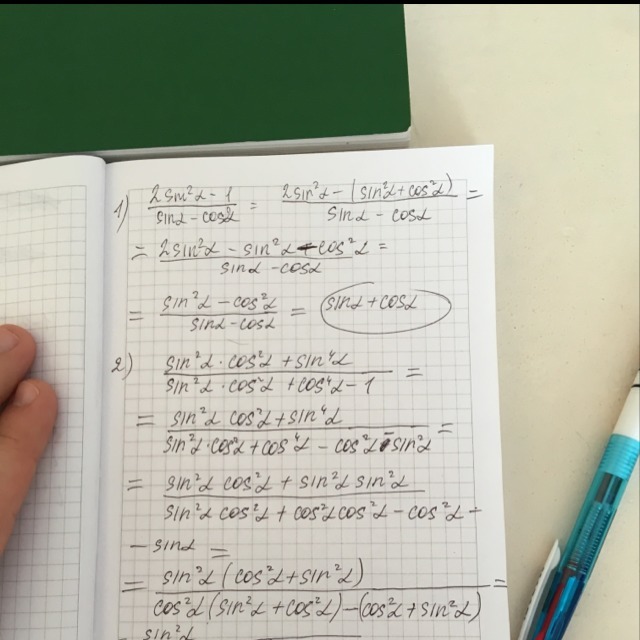 1) (2sin²α - 1)/(sinα - cos²α) = (2sin²α - (sin²α + cos²α))/(sinα - cosα) =
= (2sin²α - sin²α - cos²α)/(sinα - cosα) =
= (sin²α - cos²α)/(sinα - cosα) = sinα + cosα
2) (sin²α · cos²α + sin⁴α)/(sin²α · cos²α + cos⁴α - 1) =
= (sin²α cos²α + sin⁴α)/(sin²α · cos²α + cos⁴α - cos²α - sin²α) =
= (sin²α cos²α + sin²α sin²α)/(sin²α cos²α + cos²α cos²α - cos²α -
- sinα) =
= (sin²α (cos²α + sin²α))/(cos²α (sin²α + cos²α) - (cos²α + sin²α)) =
= sin²α